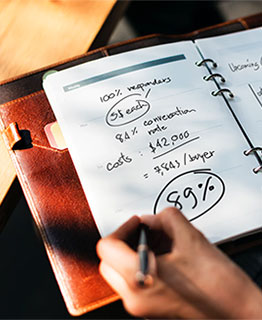 100% responders
5$ each
84% conversation
rate
costs: $42,000
= 784$/buyer
89%
Upcoming